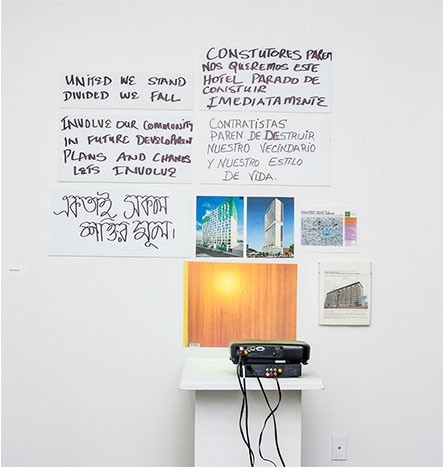 UNITED WE STAND
DIVIDED WE FALL
CONSTUTORES PAREN
NOS QUEREMOS ESTE
HOTEL PARADO DE
CONSTUIR
IMEDIATAMENTE
INVOLVE OUR COMMUNITY
IN FUTURE DEVELOPMENT
PLANS AND CHANGES
LETS INVOLVE
CONTRATISTAS
PAREN DE DESTRUIR
NUESTRO VECINDARIO
Y NUESTRO ESTILO
DE VIDA.
একতাই সকল
শক্তির মূল।